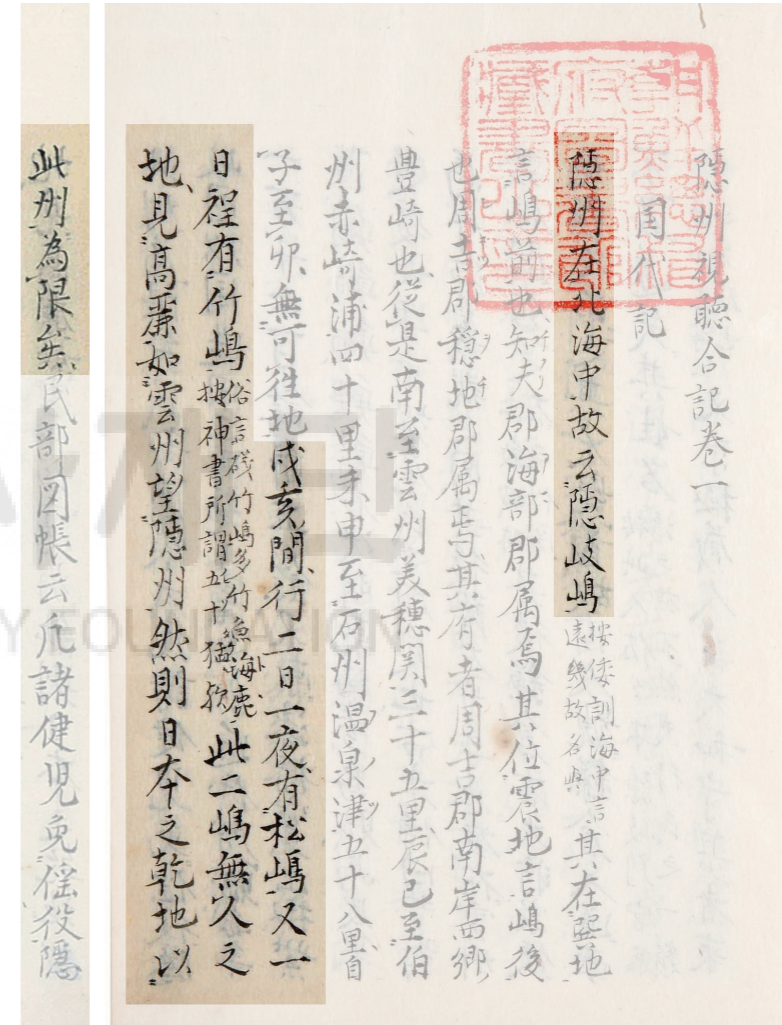 隱州視聽合記巻一
国代記
隱州在北海中故云隱岐嶋按倭訓海中言遠幾故名與其在巽地
言嶋前也知夫郡海部郡属焉其位震地言嶋後
也周吉郡穏地郡属焉其府者周吉郡南岸西郷
豊崎也従是南至雲州美穂関三十五里辰巳至伯
州赤崎浦四十里未申至石州温泉津五十八里自
子至卯無可往地戍亥間行二日一夜有松嶋又一
日程有竹嶋俗言磯竹嶋多竹漁海鹿按神書所謂五十猛歟此二嶋無人之
地見高麗如雲州望隱州然則日本之乾地以
此州為限矣民部図帳云凡諸健児免徭役隱
Y FOUNDATION